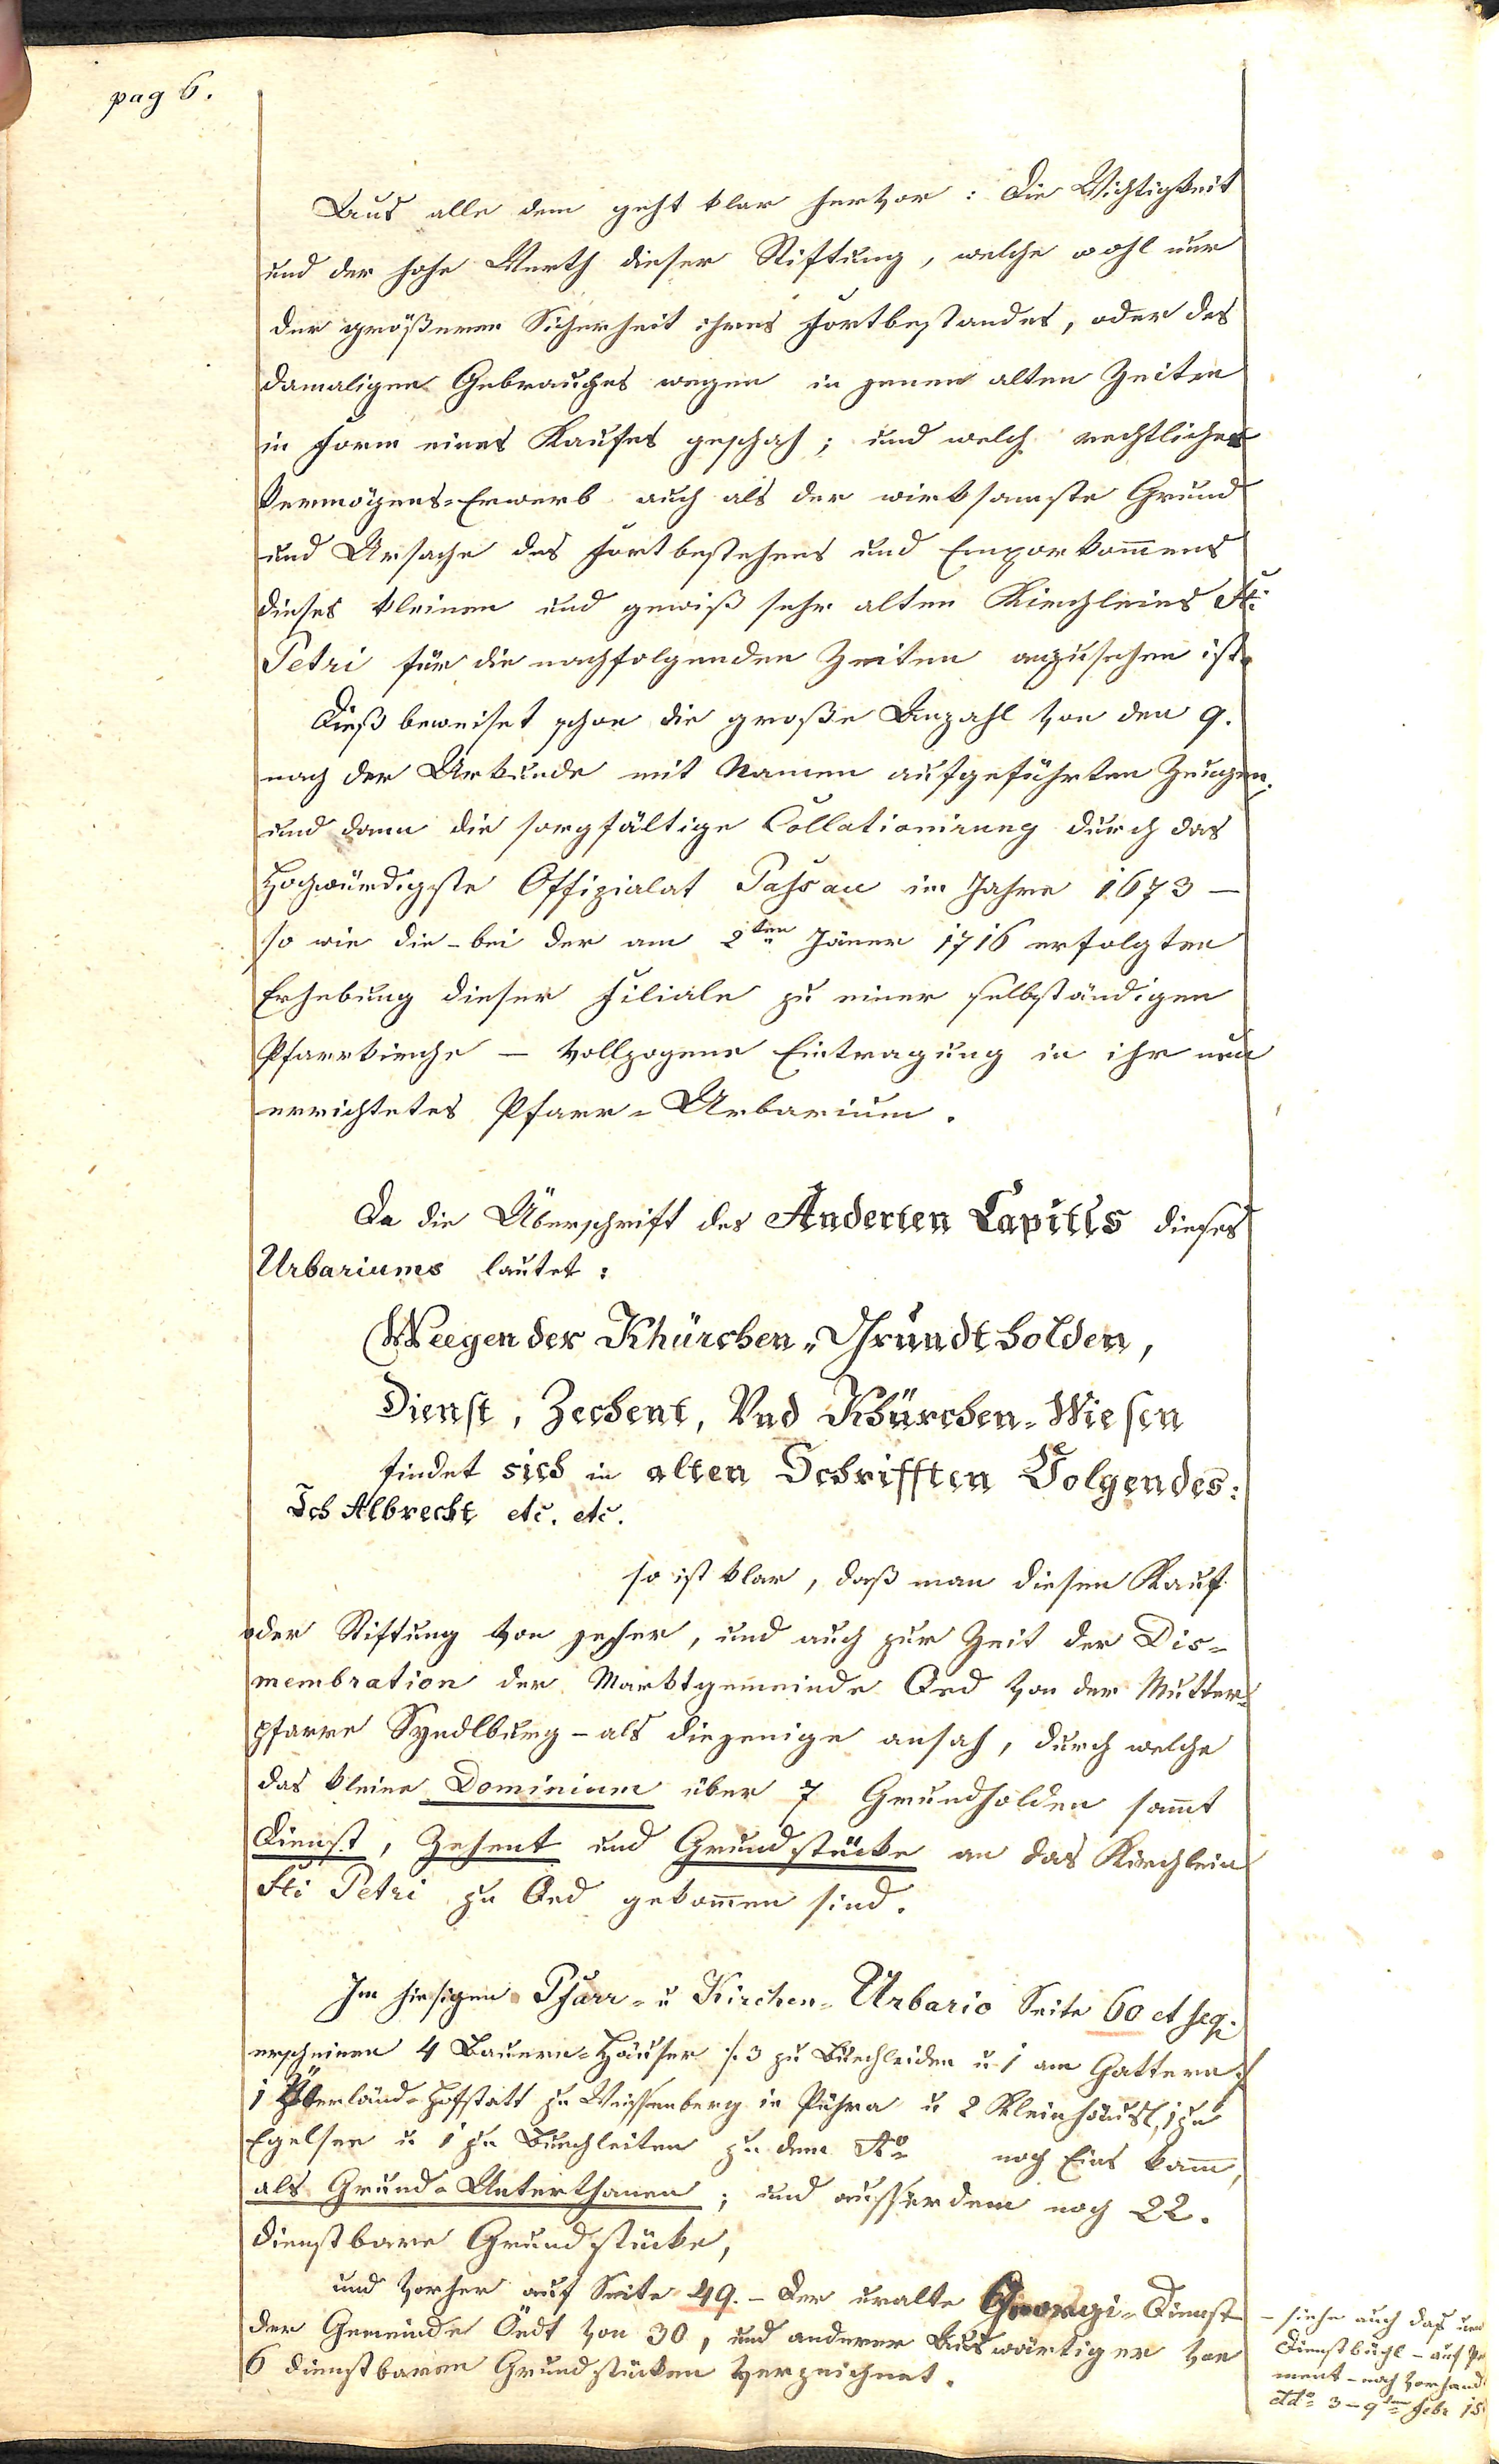 pag 6.
Aus alle dem geht klar hervor: die Wichtigkeit
und der hohe Werth dieser Stiftung, welche wohl nur
der größeren Sicherheit ihres Fortbestandes, oder des
damaligen Gebrauches wegen in jenen alten Zeiten
in Form eines Kaufes geschah; und welch rechtlicher
Vermögens-Erwerb auch als der wirksamste Grund
und Ursache des Fortbestehens und Emporkom̄ens
dieses kleinen und gewiß sehr alten Kirchleins Sti
Petri für die nachfolgenden Zeiten anzusehen ist.
Dieß beweiset schon die große Anzahl von den 9.
nach der Urkunde mit Namen aufgeführten Zeugen.
und dann die sorgfältige Collationirung durch das
Hochwürdigste Offizialat Paßau im Jahre 1673 –
so wie die – bei der am 2ten Jäner 1716 erfolgten
Erhebung dieser Filiale zu einer selbständigen
Pfarrkirche – vollzogene Eintragung in ihr neu
errichtetes Pfarr-Urbarium.
Da die Überschrift des Anderten Capitls dieses
Urbariums lautet:
Weegen der Khürchen-Grundtholden,
Dienst, Zechent, Vnd Khürchen-Wiesen
findet sich in alten Schrifften Volgendes:
Ich Albrecht etc. etc.
so ist klar, daß man diesen Kauf
oder Stiftung von jeher, und auch zur Zeit der Dis-
membration der Marktgemeinde Oed von der Mutter-
pfarre Syndlburg – als diejenige ansah, durch welche
das kleine Dominium über 7 Grundholden sam̄t
Dienst, Zehent und Grundstücke an das Kirchlein
Sti Petri zu Oed gekom̄en sind.
Im hiesigen Pfarr- u Kirchen-Urbario Seite 60 et seq.
erscheinen 4 Bauern-Häuser /: 3 zu Buechleiden u 1 am Gattern :/
1 Überländ-Hofstatt zu Weissenberg in Pühra u 2 Kleinhäusl, 1 zu
Egelsee u 1 zu Buechleiten zu dem Ao noch Eins kam̄,
als Grund-Unterthanen; und ausserdem noch 22.
dienstbare Grundstücke,
und vorher auf Seite 49. – der uralte Georgi-Dienst
der Gemeinde Oedt von 30, und anderer Auswärtiger von
6 dienstbaren Grundstücken verzeichnet.
– siehe auch das
Dienstbüchl – auf
ment – noch vorhand
ddo 3 – 9ten Febr 15